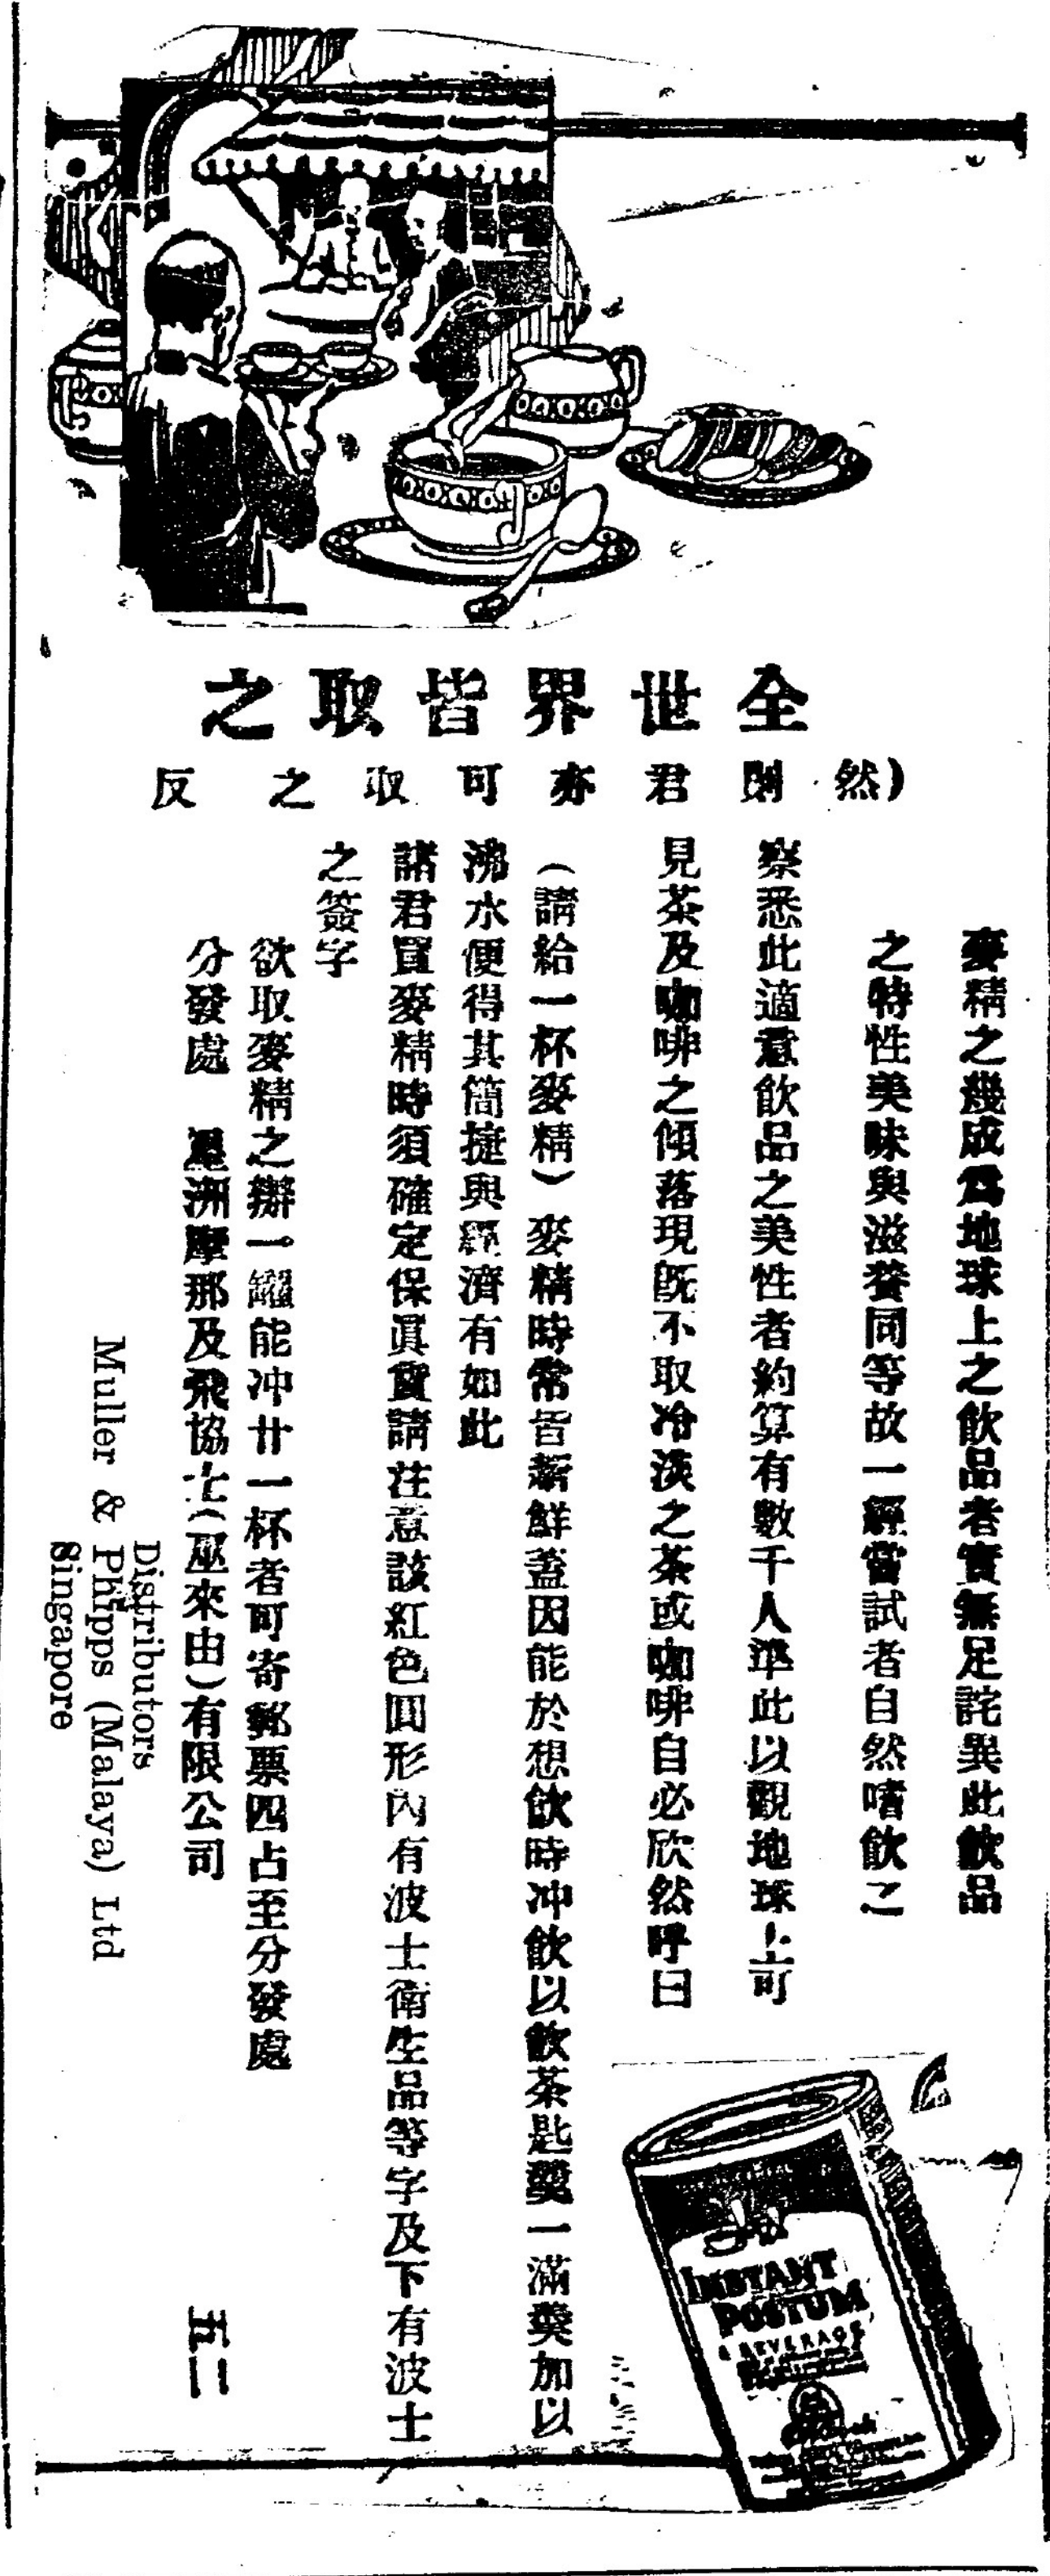 全世界皆取之
（然則君亦可取之反
麥精之幾成爲地球上之飲品者實無足詫異此飲品
之特性美味與滋養同等故一經嘗試者自然嗜飲之
察悉此適意飲品之美性者約算有數千人準此以觀地球上可
見茶及咖啡之傾落現既不取冷淡之茶或咖啡自必欣然呼曰
（請給一杯麥精）麥精時常皆新鮮蓋因能於想飲時冲飲以飲茶匙羹一滿羹加以
沸水便得其簡捷與經濟有如此
諸君買麥精時須確定保眞實請注意該紅色圓形內有波士衛生品等字及下有波士
之簽字
欲取麥精之辦一罐能冲廿一杯者可寄郵票四占至分發處
分發處 星洲摩那及飛協士（巫來由）有限公司
Distributors
Muller & Phipps (Malaya) Ltd
Singapore
五二
INSTANT
POSTUM
A BEVERAGE